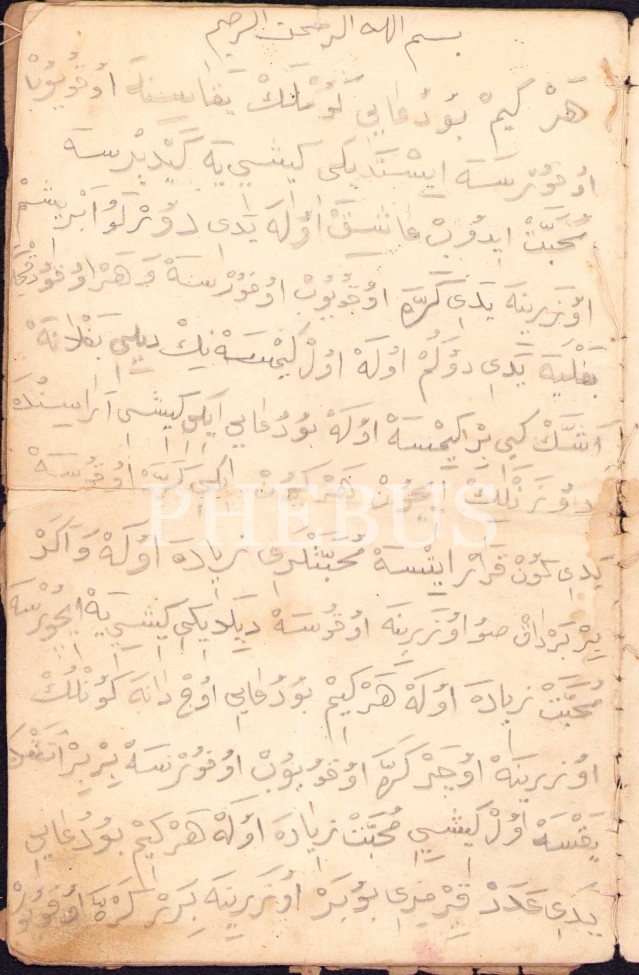 بسم الله الرحمن الرحيم
هَرْ كِيمْ بُودُعَايِي كُومْلَكْ يَقَاسِنَهْ اوُقُويُوبْ
اوُقُوْرسَهَ ايسْتَدِيكِى كِيشِييَهَ كَيْدِيْرسَهَ
مُحَبَّتْ ايدُوبْ عَاشِقْ اوُلَهَ يَدِى دوُرْلوُ اَبْرِيشِمْ
اوُزَرِينَهَ يَدِى كَرَّهَ اوُقُويُوبْ اوُقُوْرسَهْ وَهَرْ اوُقُودُقْجَهَ
بَغْلَيَهَ يَدِى دوُكُمْ اوُلَهْ اوُلْ كِيمْسَهْ نِكْ دِيلِى بَغْلَانَهْ
اَشَكْ كِبِى بِرْ كِيمْسَهْ اوُلَهْ بُودُعَايِى اِيكِى كِيشِى اَرَاسِنْدَهَ
دوُزَنْلِكْ اِيچُونْ هَرْ كُونْ اِيكِى كَرَّهْ اوُقُوسَهْ
يَدِى كُونْ قَرَارْ ايتْسَهْ مُحَبَّتْلَرِى زِيَادَهَ اوُلَهْ وَاَكَرْ
بِرْ بَرْدَاقْ صُو اوُزَرِينَهَ اوُقُوسَهْ دِيلَدِيكِى كِيشِييَهْ اِيچُوْرسَهَ
مُحَبَّتْ زِيَادَهَ اوُلَهْ هَرْ كِيمْ بُودُعَايِى اوُچْ دَانَهَ كوُنْلُكْ
اوُزرِينَهْ اوُچَرْ كَرَّهَ اوُقُويُوبْ اوُقُوْرسَهْ بِرْبِرْ اَتَشْدَه
يَقْسَهْ اوُلْ كِيشِيى مُحَبَّتْ زِيَادَهَ اوُلَهْ هَرْ كِيمْ بُودُعَايِى
يَدِى عَدَدْ قِرْمِزِى بُوبَرْ اوُزَرِينَهَ بِرَرْ كَرَّهَ اوُقُويُوبْ
PHEBUS